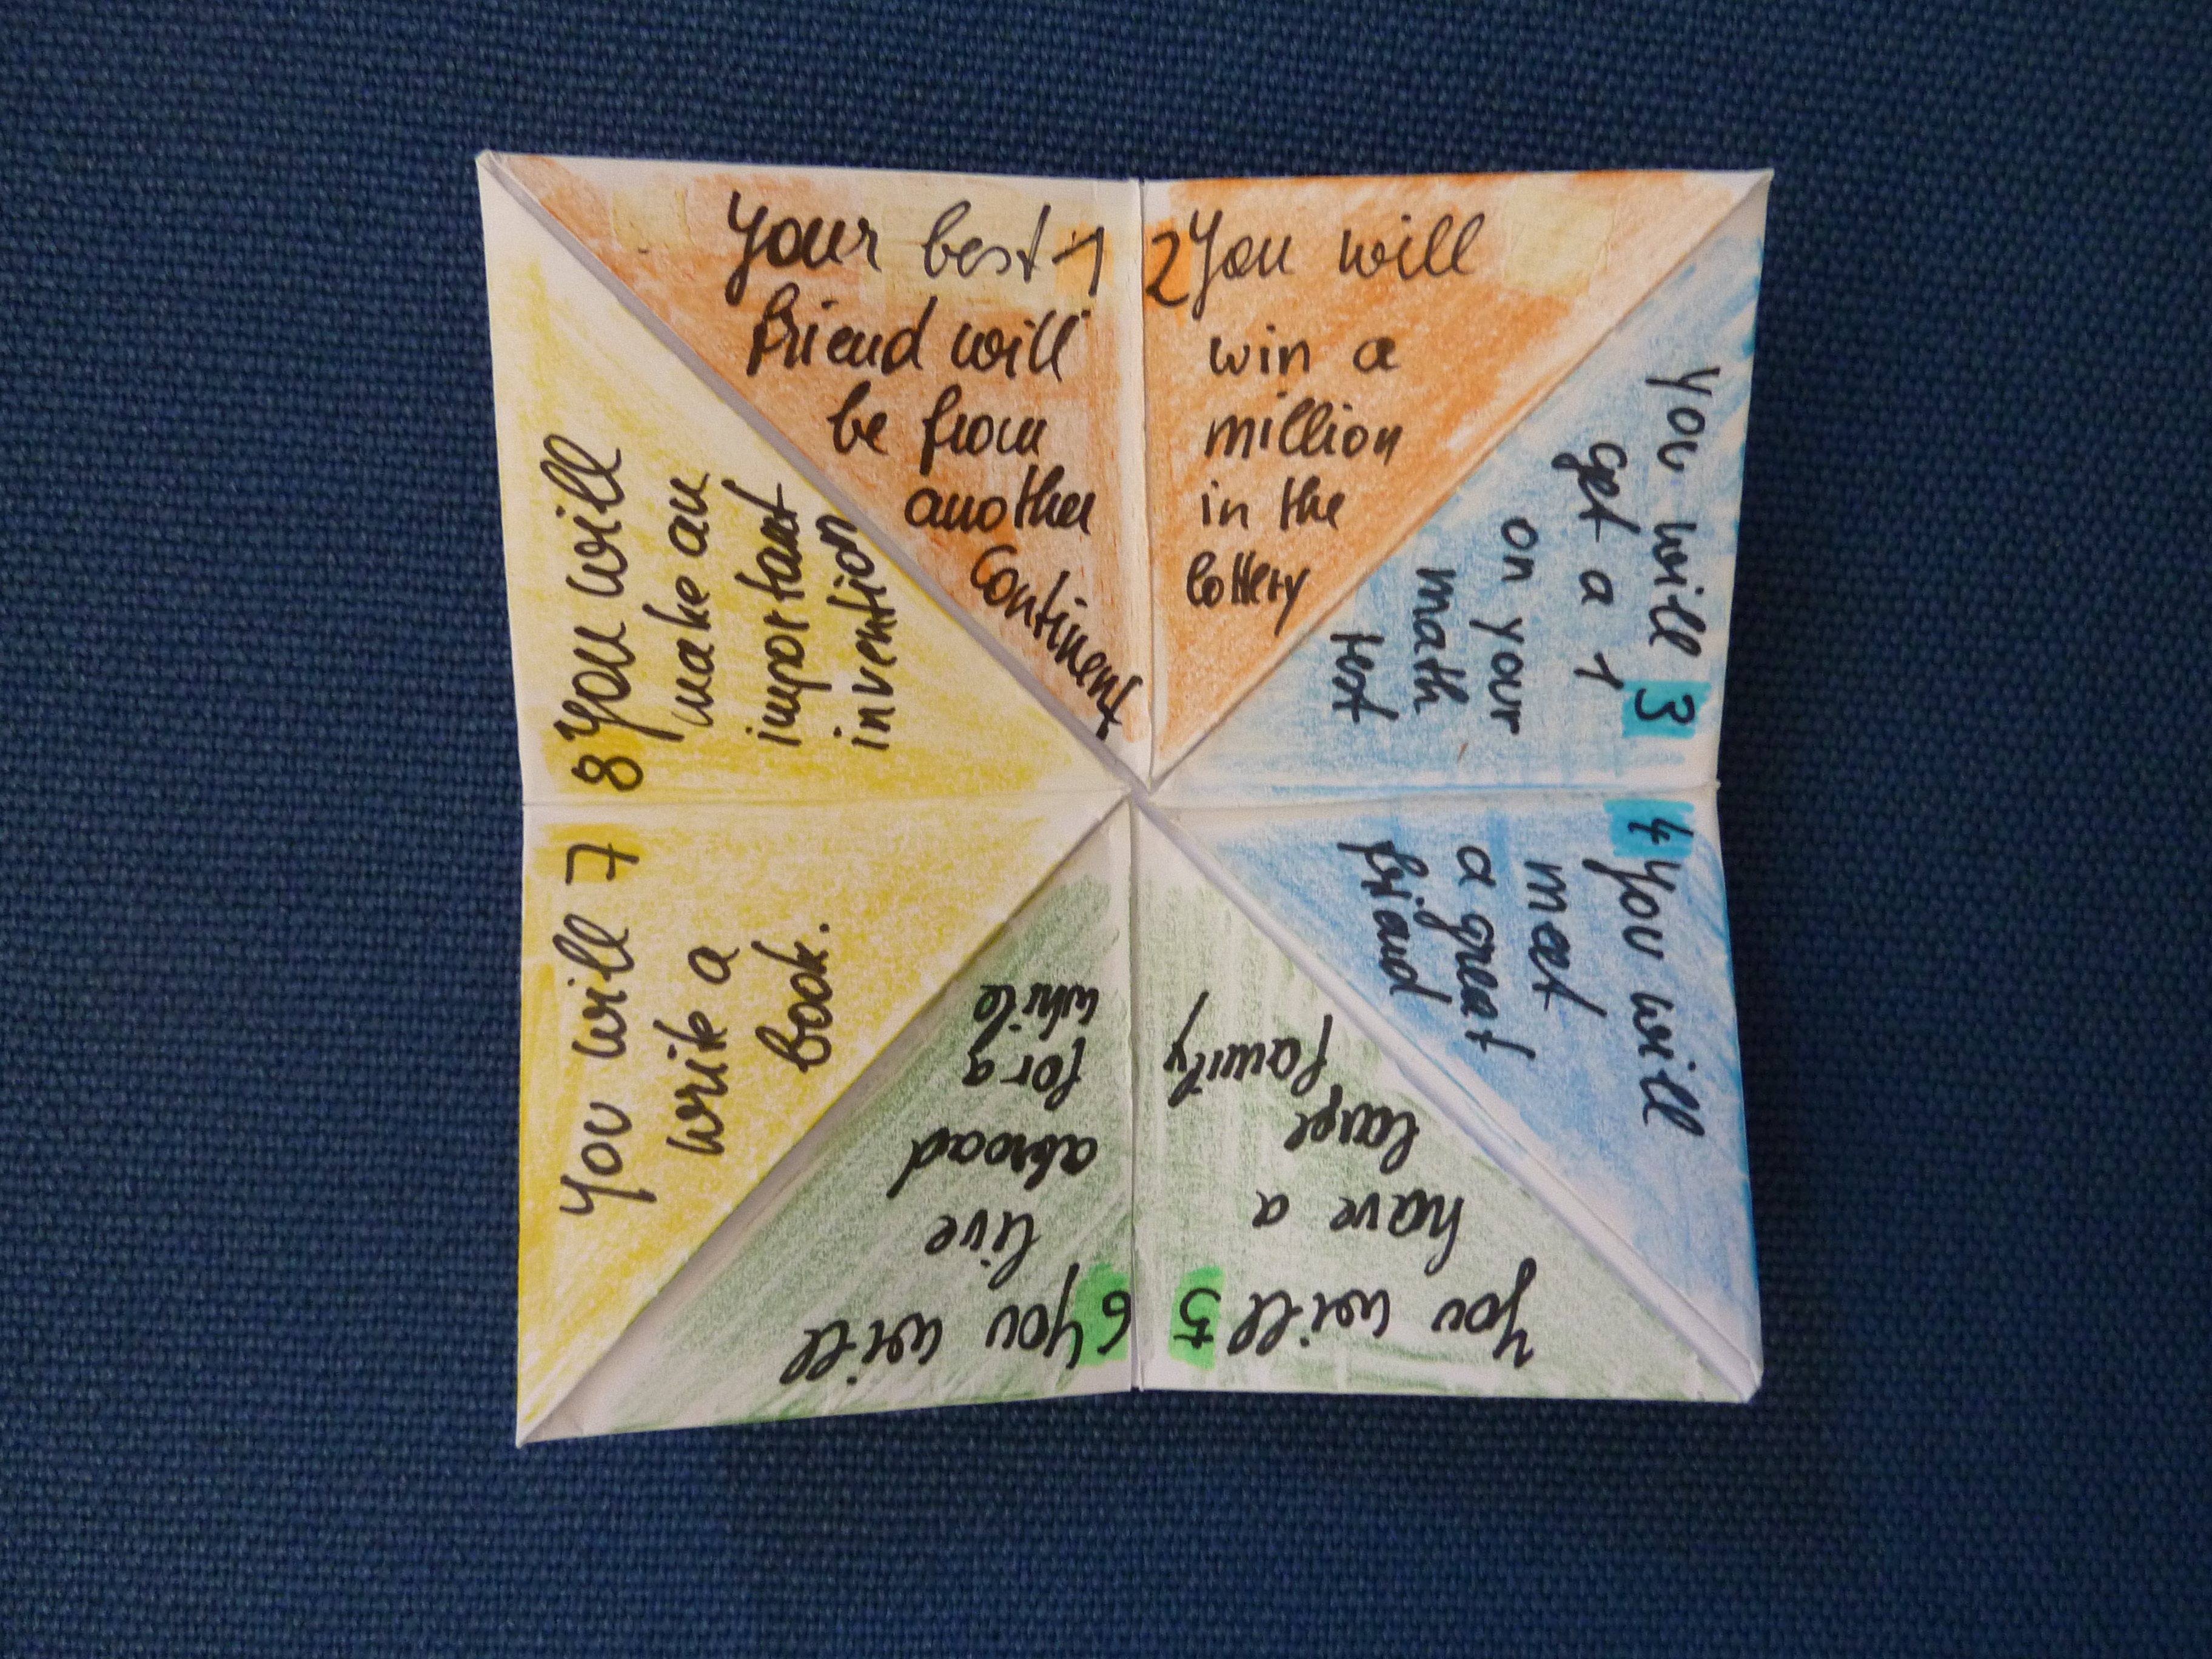 Your best 1
friend will
be from
another
continent
2 You will
win a
million
in the
lottery
You will 3
get a 1
on your
math
test
4 You will
meet
a great
friend
You will 5
have a
large
family
6 You will
live
abroad
for a
while
You will 7
write a
book.
8 You will
make an
important
invention